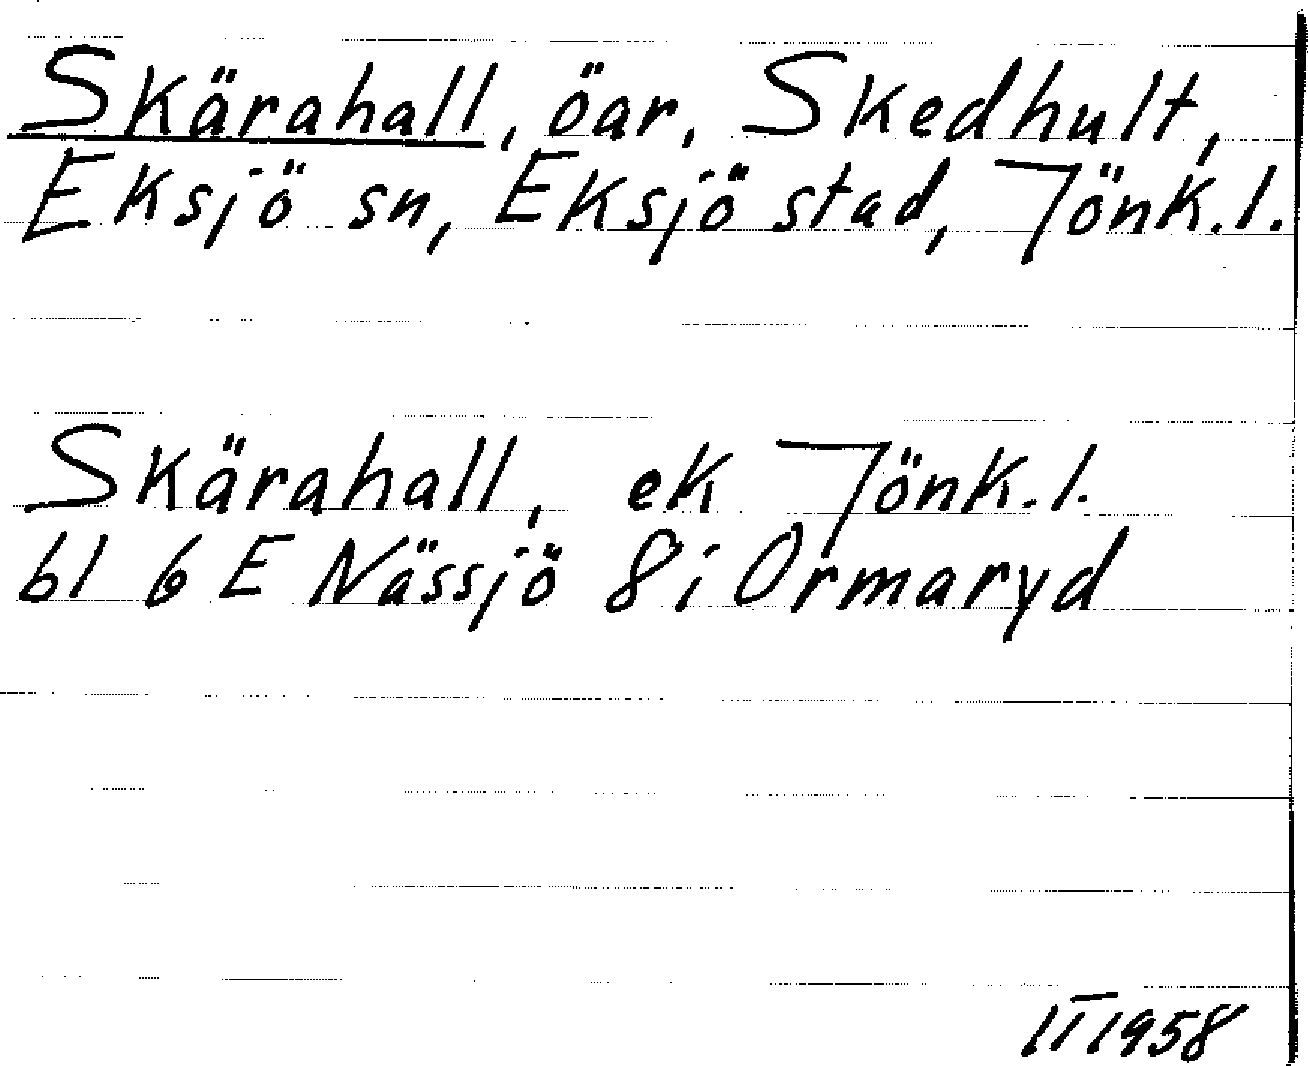 Skärahall, öar, Skedhult,
Eksjö sn, Eksjö stad, Jönk.l.
Skärahall, ek Jönk.l.
bl 6 E Nässjö 8i Ormaryd
II 1958